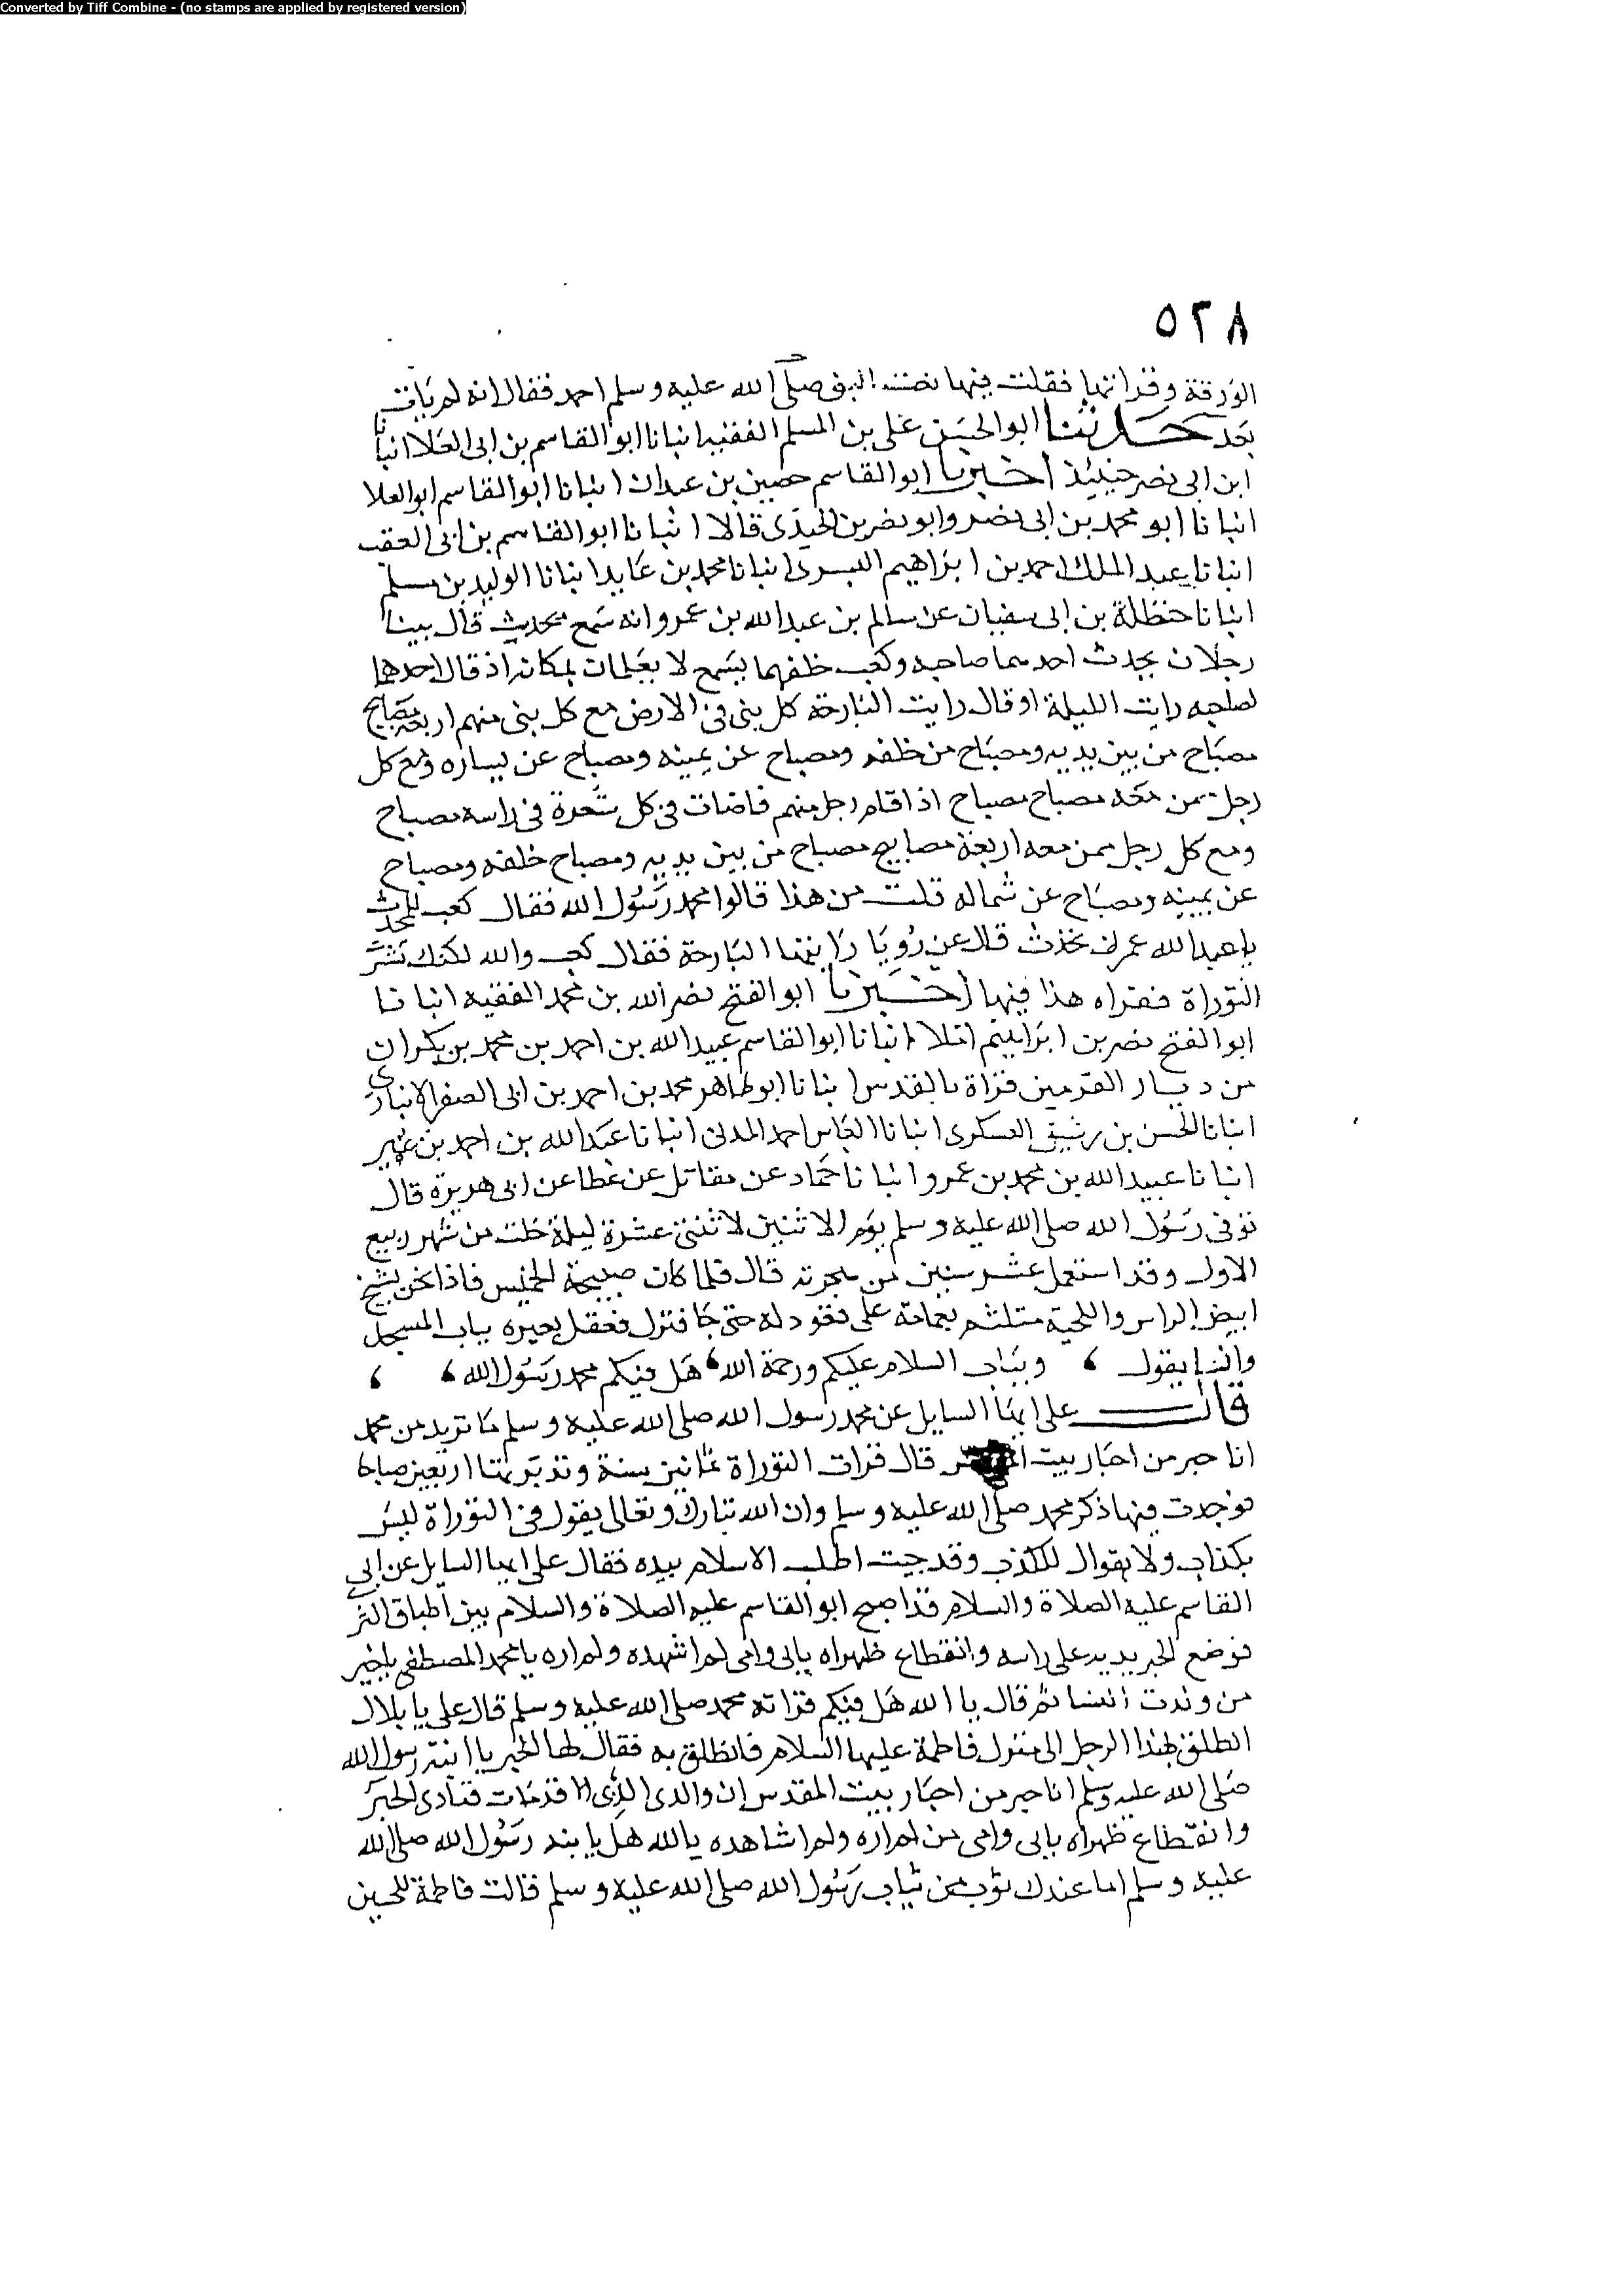 Converted by Tiff Combine - (no stamps are applied by registered version)
٥٢٨
الورقة وقراتها فقلت فيها نعت النبى صلى الله عليه وسلم احمد فقال انه لم يات
بعد حدثنا ابو الحسن على بن المسلم الفقيه انبانا ابو القاسم بن ابى العلا انبانا
ابن ابى نصر حينيذ اخبرنا ابو القاسم حصين بن عبدان انبانا ابو القاسم ابو العلا
انبانا ابو محمد بن ابى نصر وابو نصر بن الجندى قالا انبانا ابو القاسم بن ابى العقب
انبانا عبد الملك احمد بن ابراهيم البسرى انبانا محمد بن عايد انبانا الوليد بن مسلم
انبانا حنظلة بن ابى سفيان عن سالم بن عبد الله بن عمر وانه سمع يحديث قال بينا
رجلان يحدث احدهما صاحبه وكعب خلفهما يسمع لا يعلمان بمكانه اذ قال احدهما
لصاحبه رايت الليلة او قال رايت البارحة كل بنى فى الارض مع كل بنى منهم اربعة مصابيح
مصباح من بين يديه ومصباح من خلفه ومصباح عن يمينه ومصباح عن يساره ومع كل
رجل ممن معه مصباح مصباح اذا قام رجل منهم فاضات فى كل شعرة فى راسه مصباح
ومع كل رجل ممن معه اربعة مصابيح مصباح من بين يديه ومصباح خلفه ومصباح
عن يمينه ومصباح عن شماله قلت من هذا قالوا محمد رسول الله فقال كعب للمحدث
يا عبد الله عمن تحدث قال عن رويا رايتها البارحة فقال كعب والله لكنك نشرت
التوراة فقراه هذا فيها اخبرنا ابو الفتح نصر الله بن محمد الفقيه انبانا
ابو الفتح نصر بن ابراهيم املا انبانا ابو القاسم عبيد الله بن احمد بن محمد بن بكران
من ديار القرمين قراة بالقدس انبانا ابو طاهر محمد بن احمد بن ابى الصفر الانبارى
انبانا الحسن بن رشيق العسكرى انبانا العباس احمد المدنى انبانا عبد الله بن احمد بن
انبانا عبيد الله بن محمد بن عمرو انبانا حماد عن مقاتل عن عطا عن ابى هريرة قال
توفى رسول الله صلى الله عليه وسلم يوم الاثنين لاثنتى عشرة ليلة خلت من شهر ربيع
الاول وقد استعمل عشر سنين من هجرته قال فلما كان صبيحة الخميس فاذا نحن بشيخ
ابيض الراس واللحية متلثم بعمامة على قعود له حتى جا فنزل فعقل بعيره بباب المسجد
وانشا يقول ، وينادى السلام عليكم ورحمة الله ، هل فيكم محمد رسول الله ، ،
قال على ايها السايل عن محمد رسول الله صلى الله عليه وسلم ما تريد من محمد
انا حبر من احبار بيت قال قرات التوراة ثمانين سنة وتدبرتها اربعين صباحا
فوجدت فيها ذكر محمد صلى الله عليه وسلم وان الله تبارك وتعالى يقول فى التوراة ليس
بكذاب ولا بقوال للكذب وقد جيت اطلب الاسلام بيده فقال على ايها السايل عن ابى
القاسم عليه الصلاة والسلام قد اصبح ابو القاسم عليه الصلاة والسلام بين اطباق الثرى
فوضع الحبر يديه على راسه وانقطاع ظهراه بابى وامى لم اشهده ولم اره يا محمد المصطفى يا خير
من ولدت النسا ثم قال يا الله هل فيكم قراته محمد صلى الله عليه وسلم قال على يا بلال
انطلق بهذا الرجل الى منزل فاطمة عليها السلام فانطلق به فقال لها الحبر يا ابنة رسول الله
صلى الله عليه وسلم انا حبر من احبار بيت المقدس ان والدى الذى قد مات فنادى الحبر
وانقطاع ظهراه بابى وامى من لم اره ولم اشاهده يالله هل يا بنت رسول الله صلى الله
عليه وسلم اما عندك ثوب من ثياب رسول الله صلى الله عليه وسلم قالت فاطمة للحسين